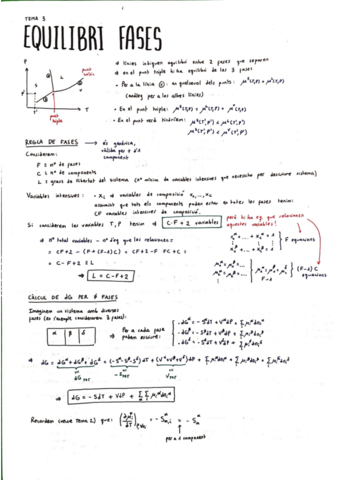 TEMA 3
EQUILIBRI FASES
P
S
L
T
punt crític
punt triple
• línies indiquen equilibri entre 2 fases que separen
• en el punt triple hi ha equilibri de les 3 fases
• Per a la línia ②: en qualsevol dels punts:
(anàleg per a les altres línies)
• En el punt triple:
• En el punt verd tindríem:
REGLA DE FASES → és genèrica, vàlida per a d'1 component
Considerem:
F ≡ nº de fases
C ≡ nº de components
L ≡ graus de llibertat del sistema (nº mínim de variables intensives que necessito per descriure sistema)
Variables intensives: • Xi ⇒ variables de composició
assumint que tots els components poden estar en totes les fases tenim:
CF variables intensives de composició.
Si considerem les variables T, P tenim ⇒ C·F + 2 variables
però hi ha eq. que relacionen aquestes variables!
F equacions
⇒ nº total variables - nº d'eq que les relacionen =
= CF + 2 - (F + (F-1) C) = CF + 2 - F - FC + C =
= C - F + 2 ≡ L
(F-1) C equacions
⇒ L = C - F + 2
CÀLCUL DE dG PER ϕ FASES
Imaginem un sistema amb diverses
fases (en l'exemple considerarem 3 fases):
α β δ
⇒ Per a cada fase podem escriure:
dG^α = -S^α dT + V^α dP + Σ μi^α dni^α
dG^β = -S^β dT + V^β dP + Σ μi^β dni^β
dG^δ = -S^δ dT + V^δ dP + Σ μi^δ dni^δ
⇒ dG = dG^α + dG^β + dG^δ = (-S^α - S^β - S^δ) dT + (V^α + V^β + V^δ) dP + Σ μi^α dni^α + Σ μi^β dni^β + Σ μi^δ dni^δ
dG = -SdT + VdP + Σ Σ μi^α dni^α
Recordem (veure Tema 2) que:
per a 1 component